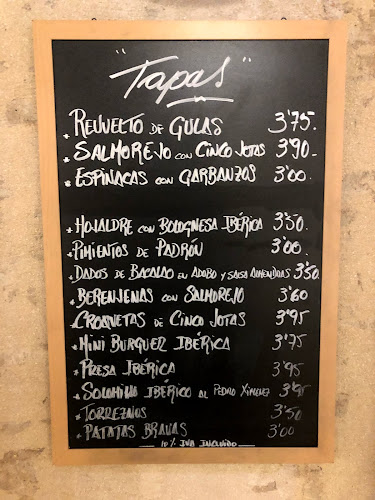 "Tapas"
* REVUELTO DE GULAS 3'75.
* SALMOREJO CON CINCO JOTAS 3'90-
* ESPINACAS CON GARBANZOS 3'00.
* HOJALDRE CON BOLOGNESA IBÉRICA 3'50.
* PIMIENTOS DE PADRÓN 3'00.
* DADOS DE BACALAO EN ADOBO Y SALSA ALMENDRAS 3'50.
* BERENJENAS CON SALMOREJO 3'60
* CROQUETAS DE CINCO JOTAS 3'95
* MINI BURGUER IBÉRICA 3'75
* PRESA IBÉRICA 3'95
* SOLOMILLO IBÉRICO AL PEDRO XIMENEZ 3'95
* TORREZNOS 3'50
* PATATAS BRAVAS 3'00
10% IVA INCLUIDO